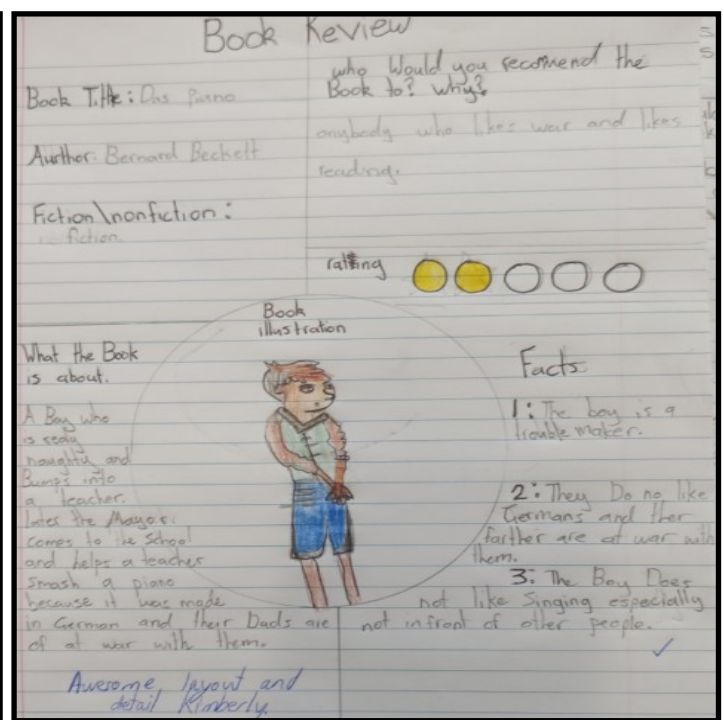 Book Review
Book Title: Das Piano
Aurthor: Bernard Beckett
Fiction\nonfiction:
fiction
who Would you recomend the
Book to? why?
anybody who likes war and likes
reading.
rating
Book
illustration
What the Book
is about.
A Boy who
is realy
naughty and
Bumps into
a teacher.
later the Mayor
comes to the School
and helps a teacher
smash a piano
because it was made
in German and their Dads are
of at war with them.
Facts
1: The boy is a
trouble maker.
2: They Do no like
Germans and ther
farther are at war with
them.
3: The Boy Does
not like Singing especially
not infront of other people.
Awesome layout and
detail Kimberly.